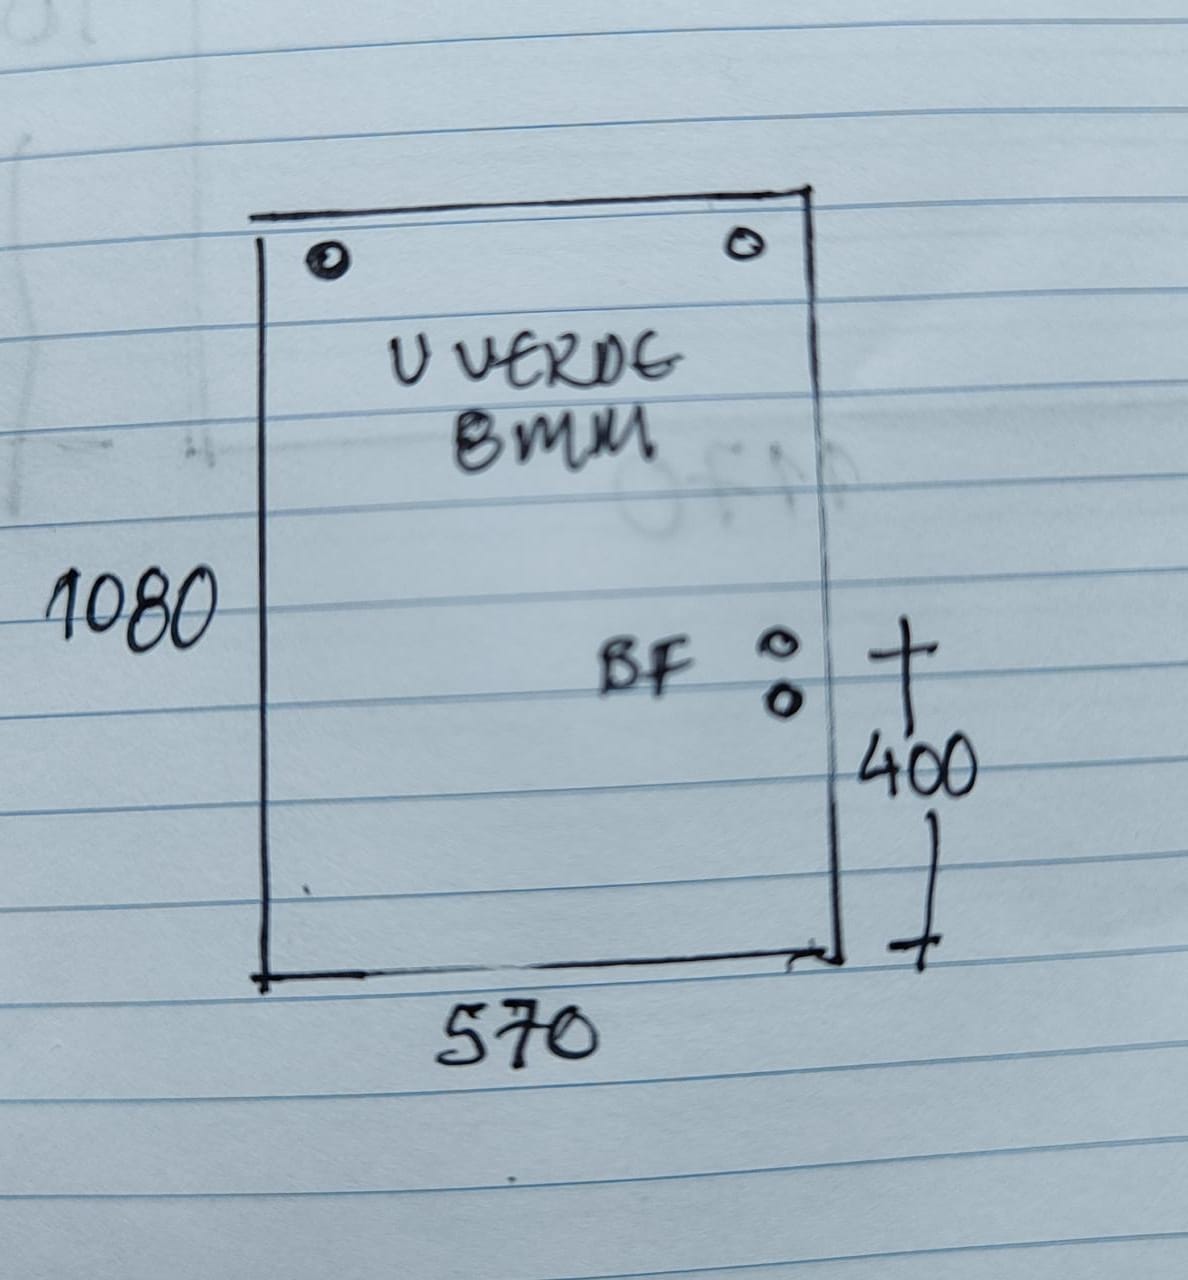 U VERDE
8MM
1080
BF
400
570